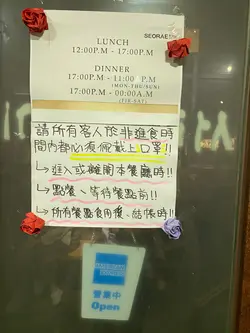 SEORAE
LUNCH
12:00P.M - 17:00P.M
DINNER
17:00P.M - 11:00P.M
(MON-THU/SUN)
17:00P.M - 00:00A.M
(FRI-SAT)
請所有客人於非進食時
間內都必須佩戴上口罩!!
↳進入或離開本餐廳時!!
↳點餐、等待餐點前!!
↳所有餐點食用後、結帳時!!
AMERICAN EXPRESS
營業中
Open